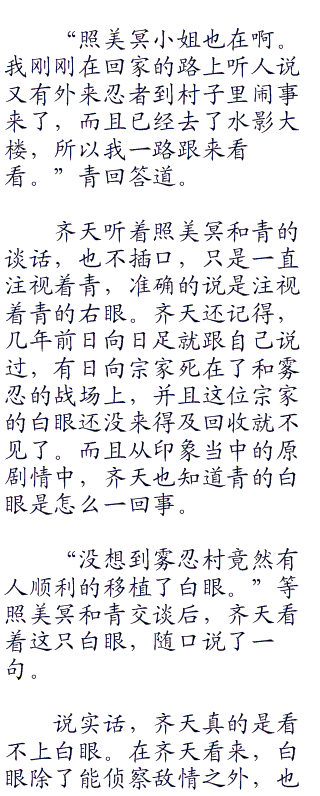 “照美冥小姐也在啊。
我刚刚在回家的路上听人说
又有外来忍者到村子里闹事
来了，而且已经去了水影大
楼，所以我一路跟来看
看。”青回答道。
齐天听着照美冥和青的
谈话，也不插口，只是一直
注视着青，准确的说是注视
着青的右眼。齐天还记得，
几年前日向日足就跟自己说
过，有日向宗家死在了和雾
忍的战场上，并且这位宗家
的白眼还没来得及回收就不
见了。而且从印象当中的原
剧情中，齐天也知道青的白
眼是怎么一回事。
“没想到雾忍村竟然有
人顺利的移植了白眼。”等
照美冥和青交谈后，齐天看
着这只白眼，随口说了一
句。
说实话，齐天真的是看
不上白眼。在齐天看来，白
眼除了能侦察敌情之外，也